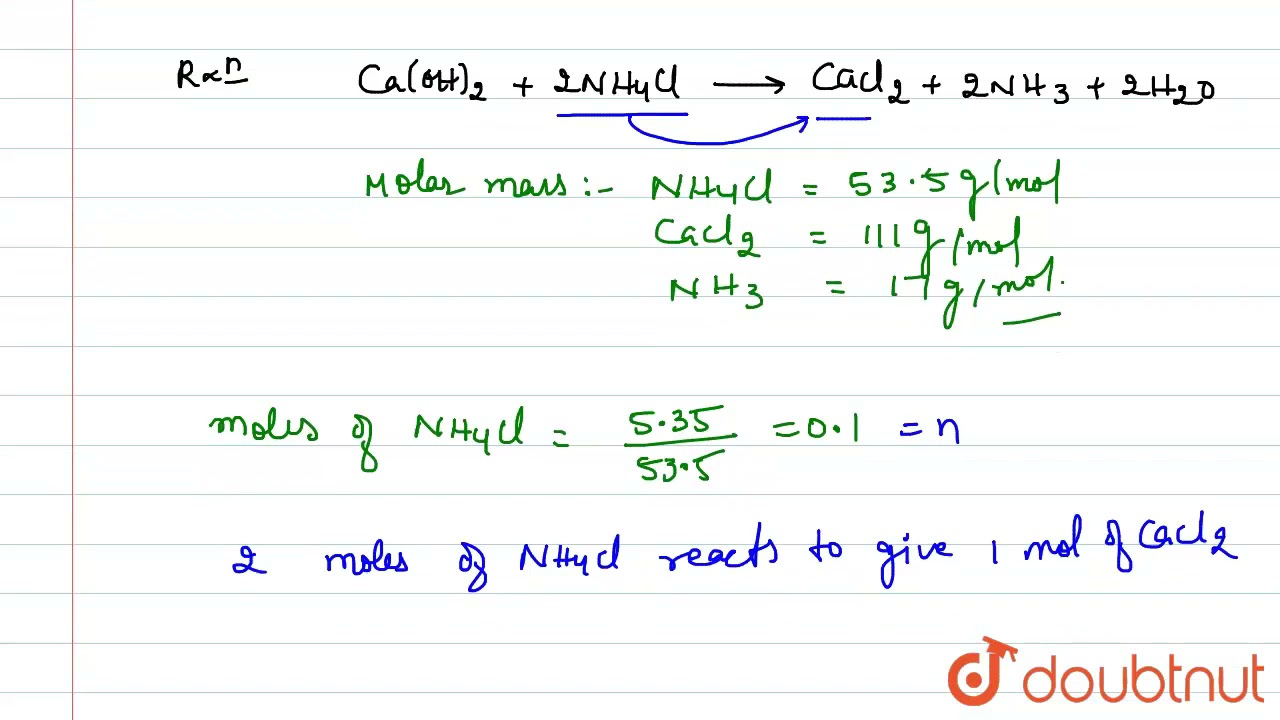 Rxn Ca(OH)2 + 2NH4Cl → CaCl2 + 2NH3 + 2H2O
Molar mass:- NH4Cl = 53.5 g/mol
CaCl2 = 111 g/mol
NH3 = 17 g/mol.
moles of NH4Cl = 5.35/53.5 = 0.1 = n
2 moles of NH4Cl reacts to give 1 mol of CaCl2
doubtnut